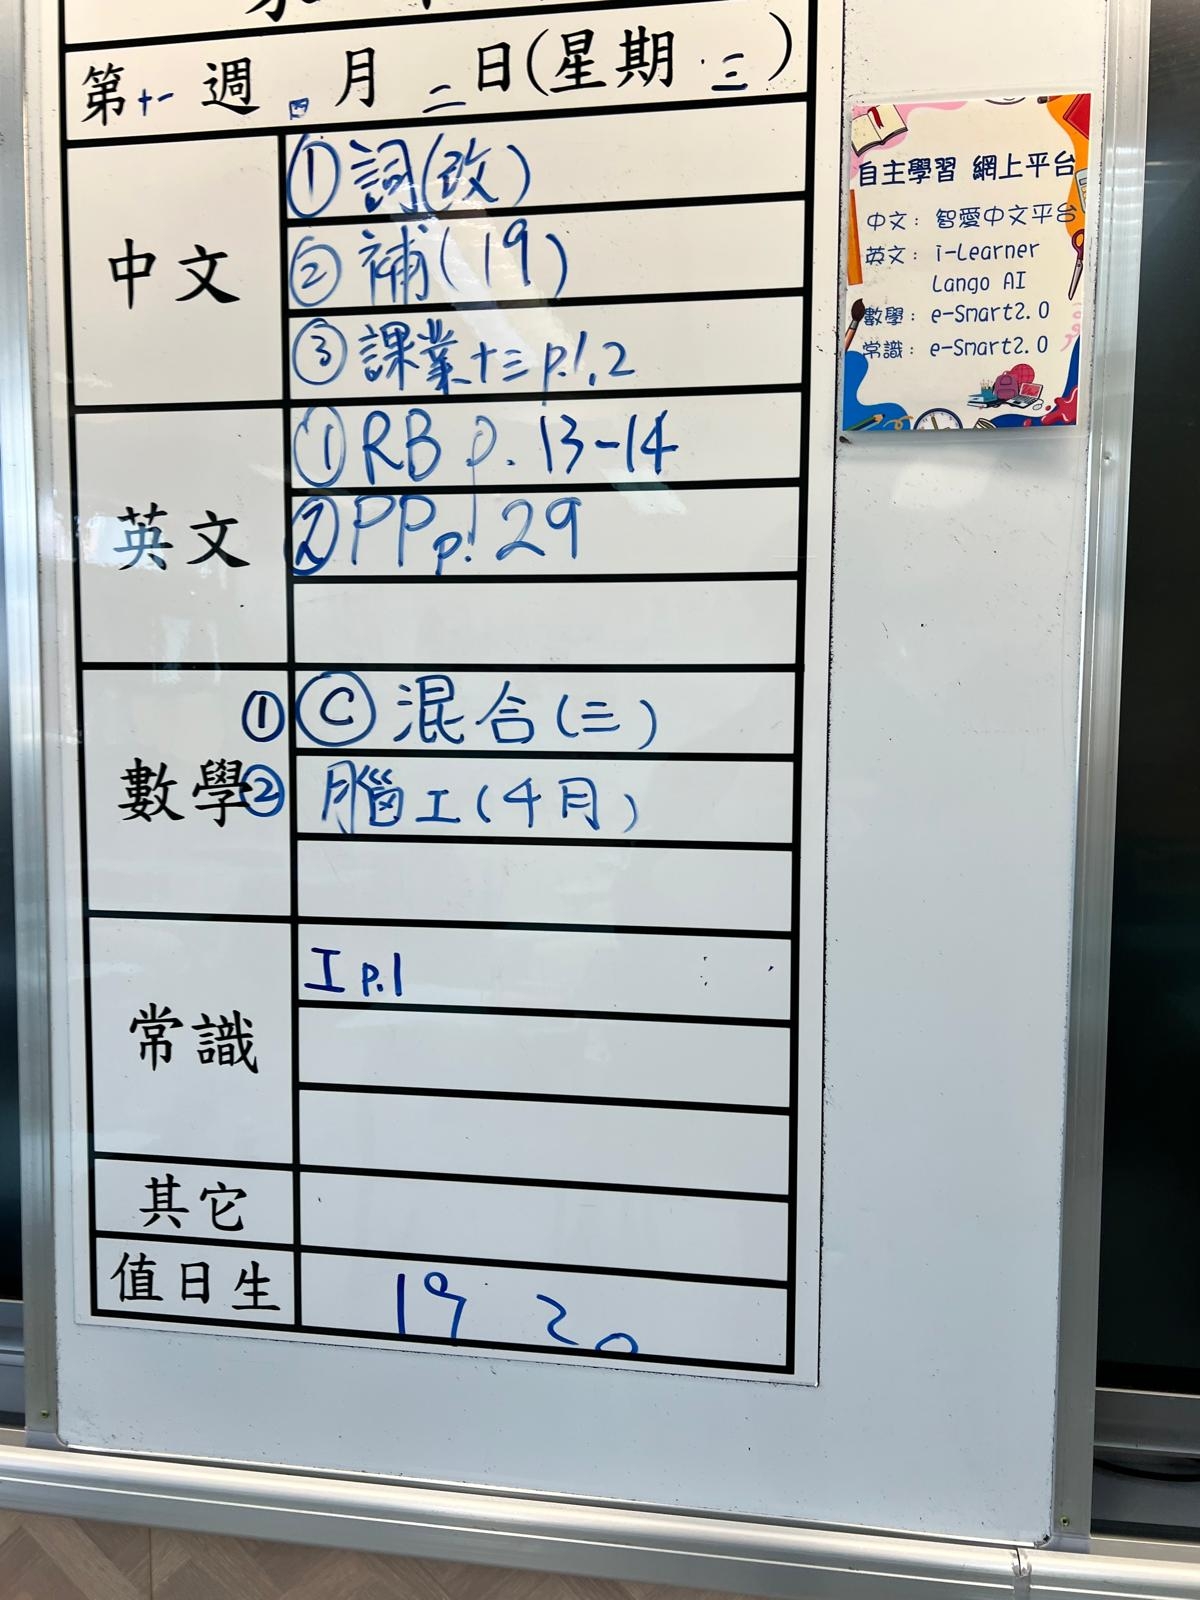 第十一週 四月二日(星期三)
中文
①詞(改)
②補(19)
③課業十三p.1,2
英文
①RB p. 13-14
②PP p. 29
數學
① Ⓒ 混合(三)
② 腦工(4月)
常識
工 p.1
其它
值日生
19 20
自主學習 網上平台
中文: 智愛中文平台
英文: i-Learner
Lango AI
數學: e-Smart2.0
常識: e-Smart2.0